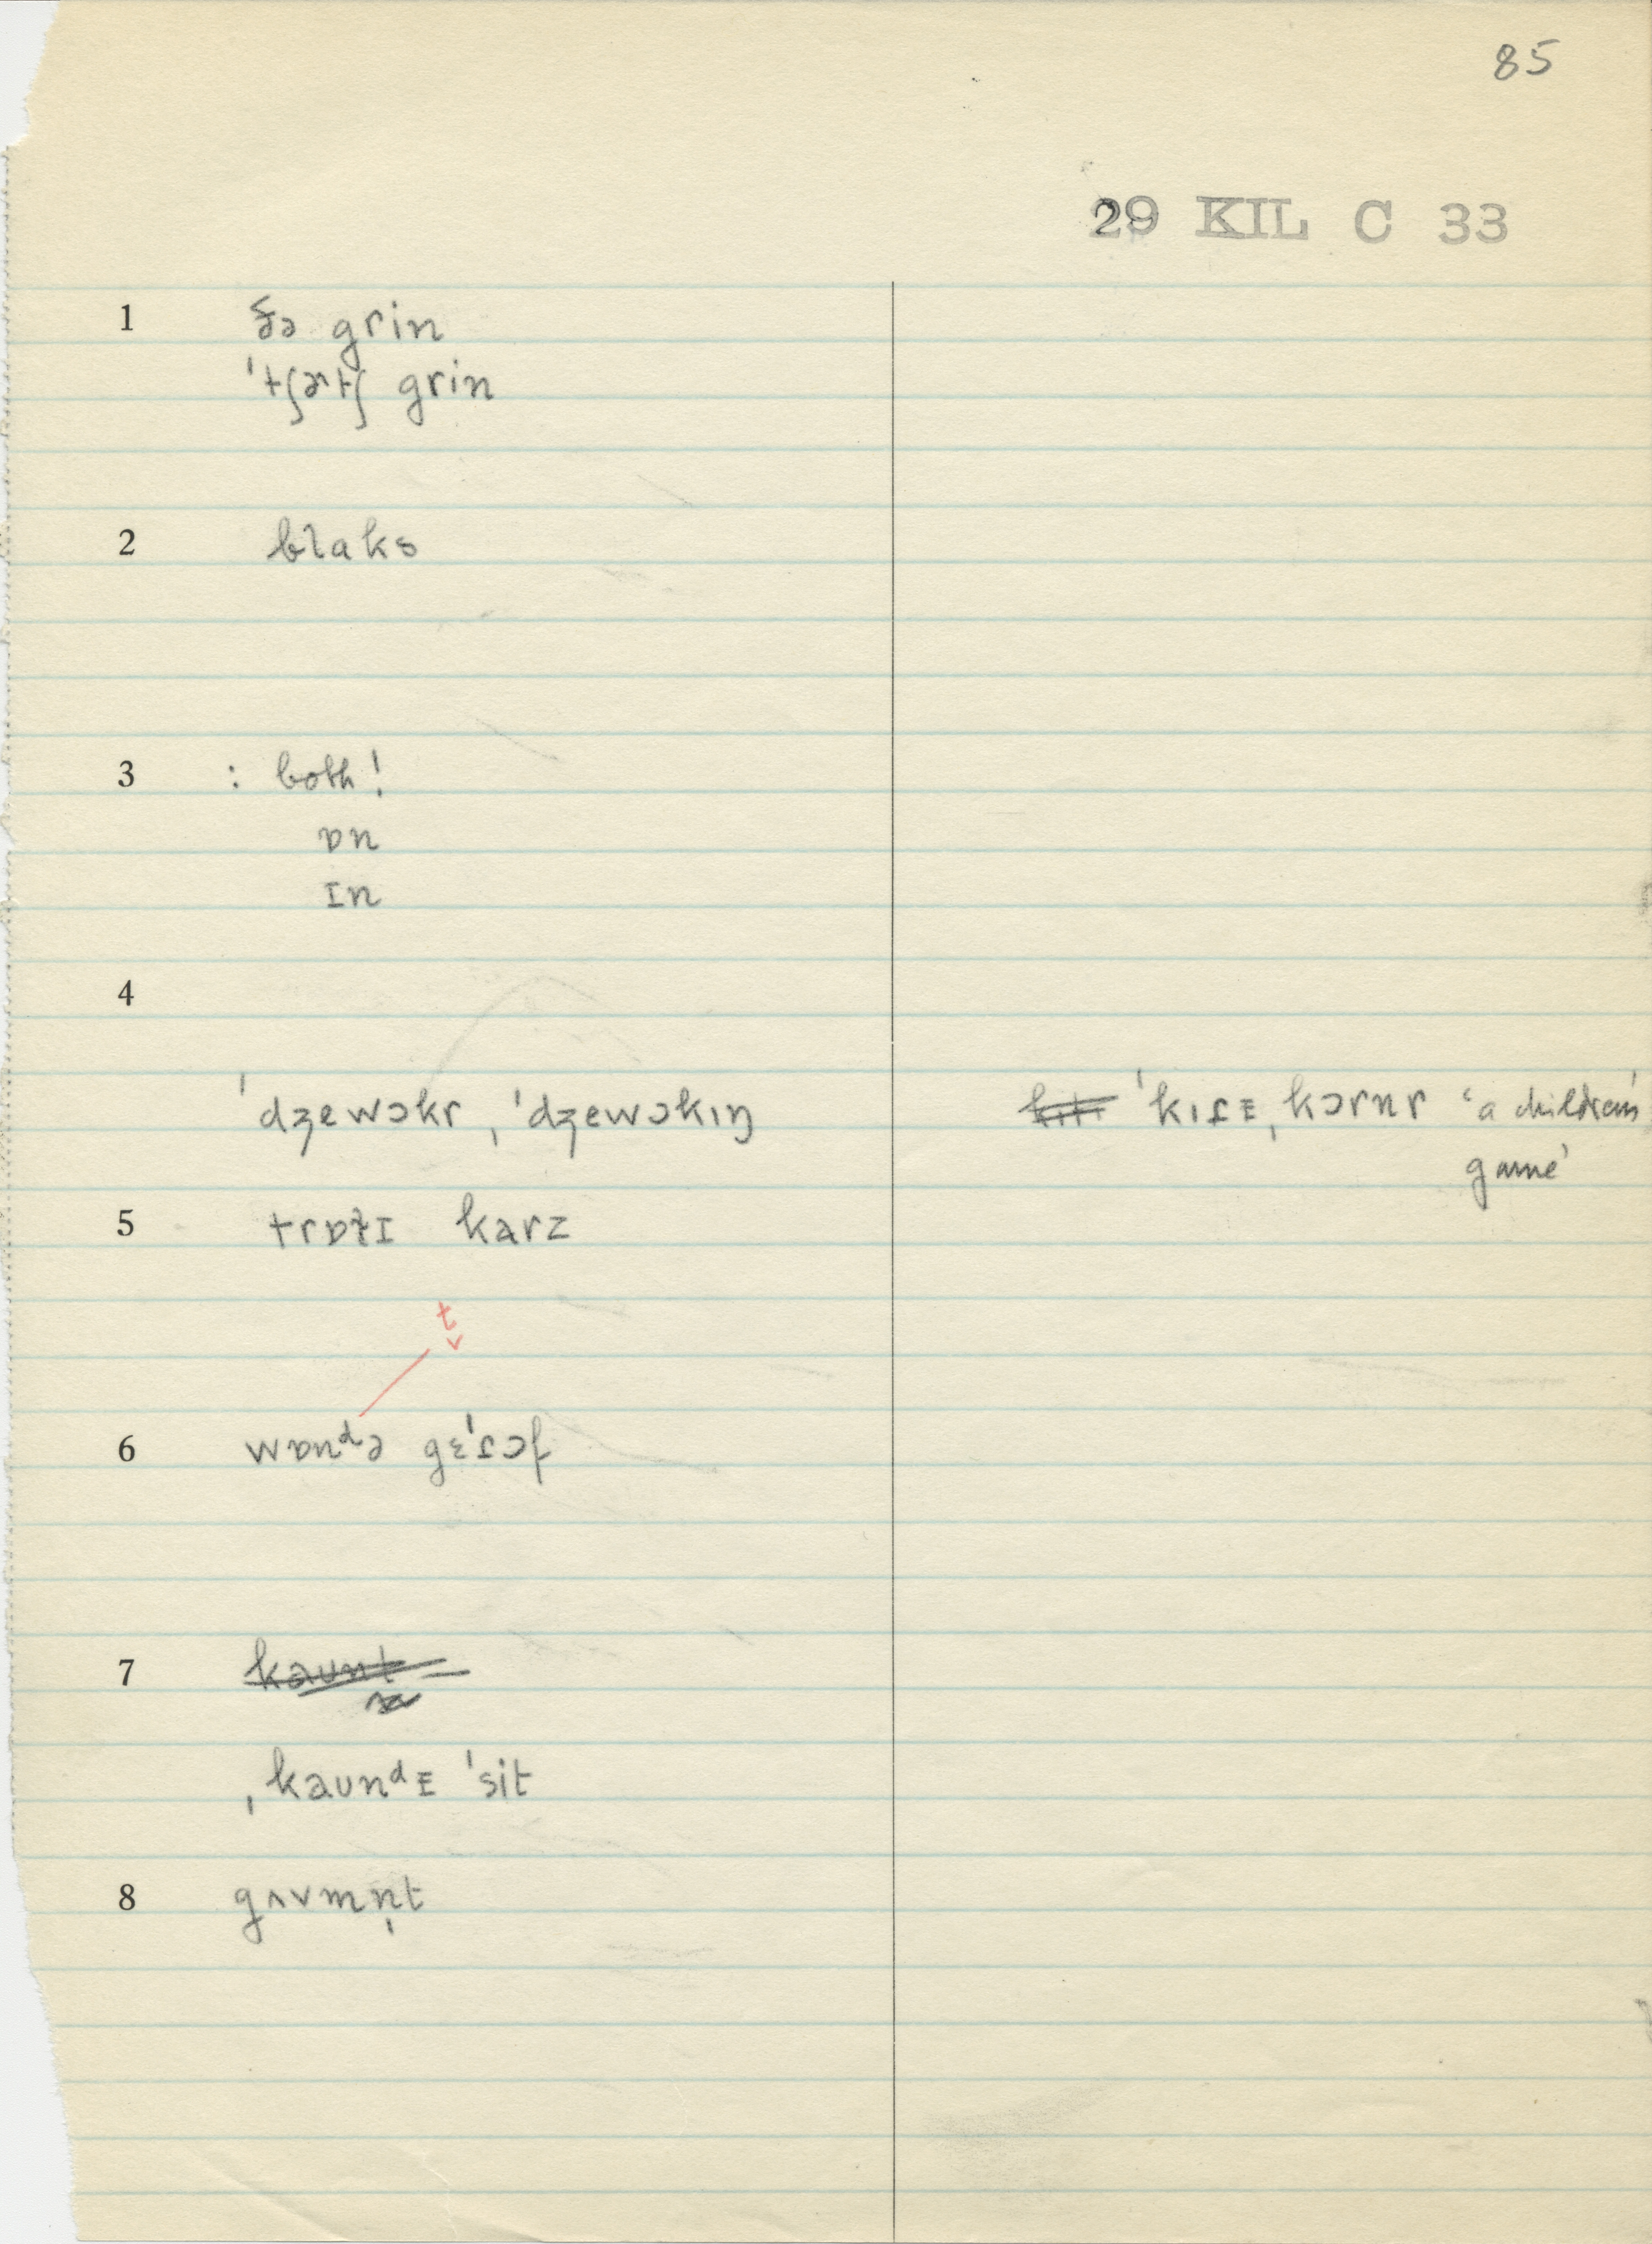 85
29 KIL C 33
1 ðə grin
ˈtʃɚtʃ grin
2 blaks
3 : both!
ɒn
ɪn
4
ˈdʒewɔkr, ˈdʒewɔkɪŋ
ˈkɪɾᴇˌkɔrnr ‘a children's
game’
5 trɒɫɪ karz
t
6 wɒnᵈə gɛˈɾɔf
7 kaunt
ˌkaunᵈᴇ ˈsit
8 gʌvmn̩t